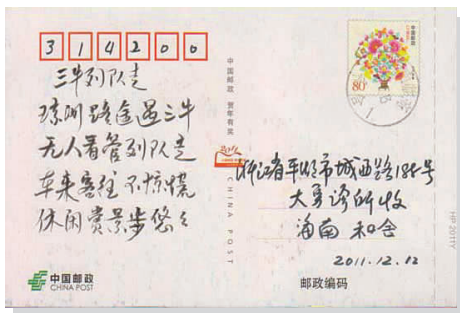 314200
三牛列队走
琼州路途遇三牛
无人看管列队走
车来客往不惊慌
休闲赏景步悠々
中国邮政 贺年有奖
2011
CHINA POST
中国邮政
80分
浙江省平湖市城西路185号
大勇诊所收
海南 和仝
2011.12.12
中国邮政
CHINA POST
邮政编码
HP 2011Y